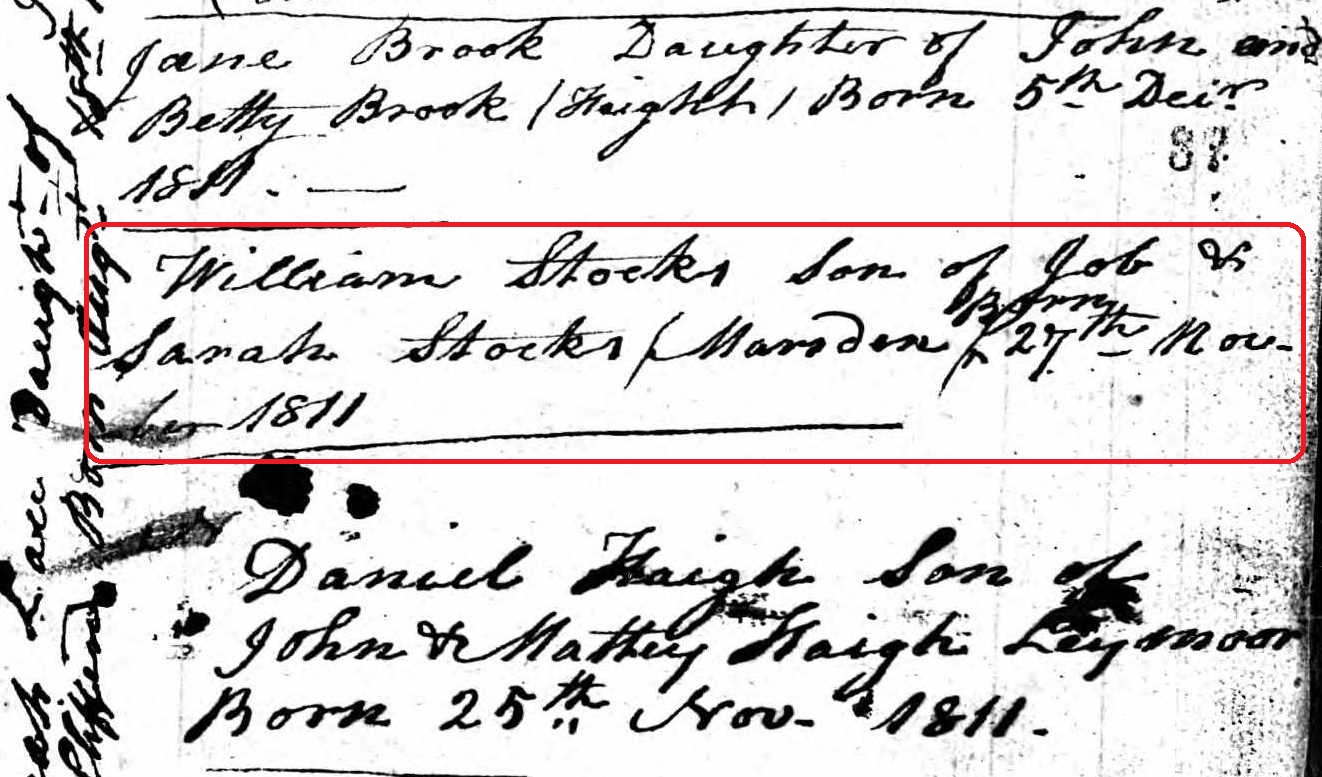 Jane Brook Daughter of John and
Betty Brook / Haighh / Born 5th Decr.
1811. —
87
William Stocks Son of Job &
Born
Sarah Stocks / Marsden / 27th Nov-
ber 1811
Daniel Haigh Son of
John & Mattey Haigh Leymoor
Born 25th Nov- 1811.
Daught- of
Born Augt